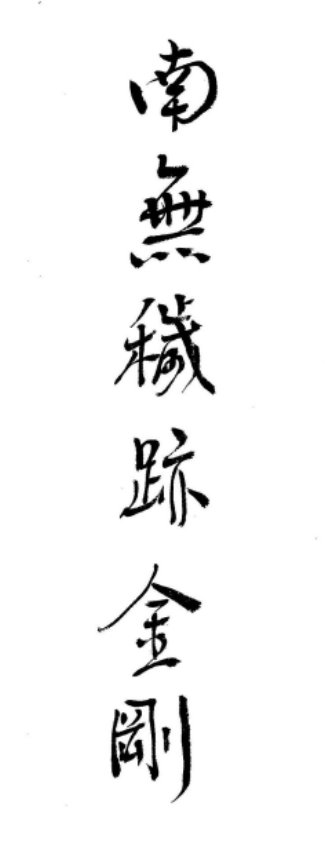 南無穢跡金剛